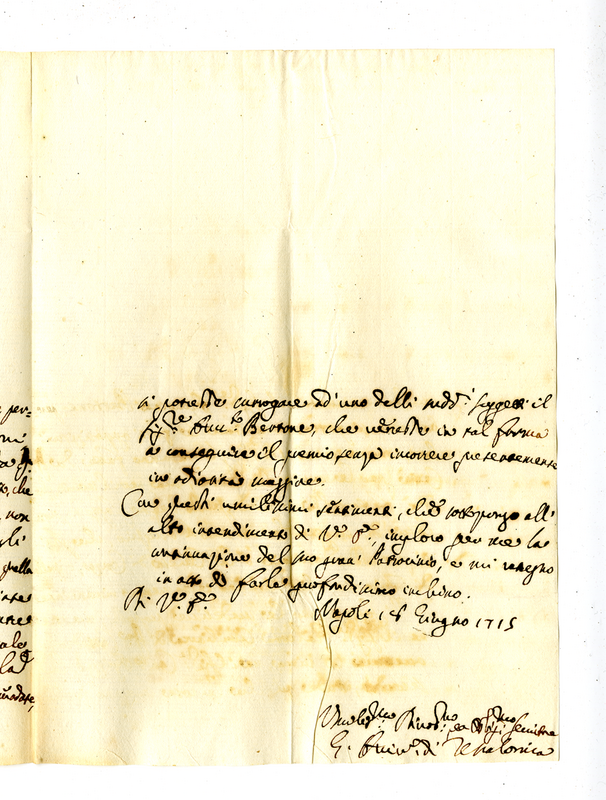 si potesse surrogare ad uno delli sudd.i soggetti il
Sig.re Bertone, che verebbe in tal forma
a conseguire il premio senza incorrere presentemente
in odiosità maggiore.
Con questi umilissimi sentimenti, che sottopongo all'
alto intendimento di V. E., imploro per me la
continuazione del suo gran Patrocinio, e mi rasegno
in atto di farle profondissimo inchino.
Di V. E.
Napoli 18 Giugno 1715
Umiliss.mo Divot.mo ed Obl.mo Servitore
di
per-
che
non
gli
quella